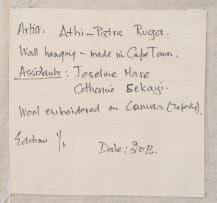 Artist: Athi-Patra Ruga.
Wall hanging - made in Cape Town.
Assistants: Joseline Mare
Catherine Sekayi.
Wool embroidered on Canvas
Edition 1/1
Date: 2013.